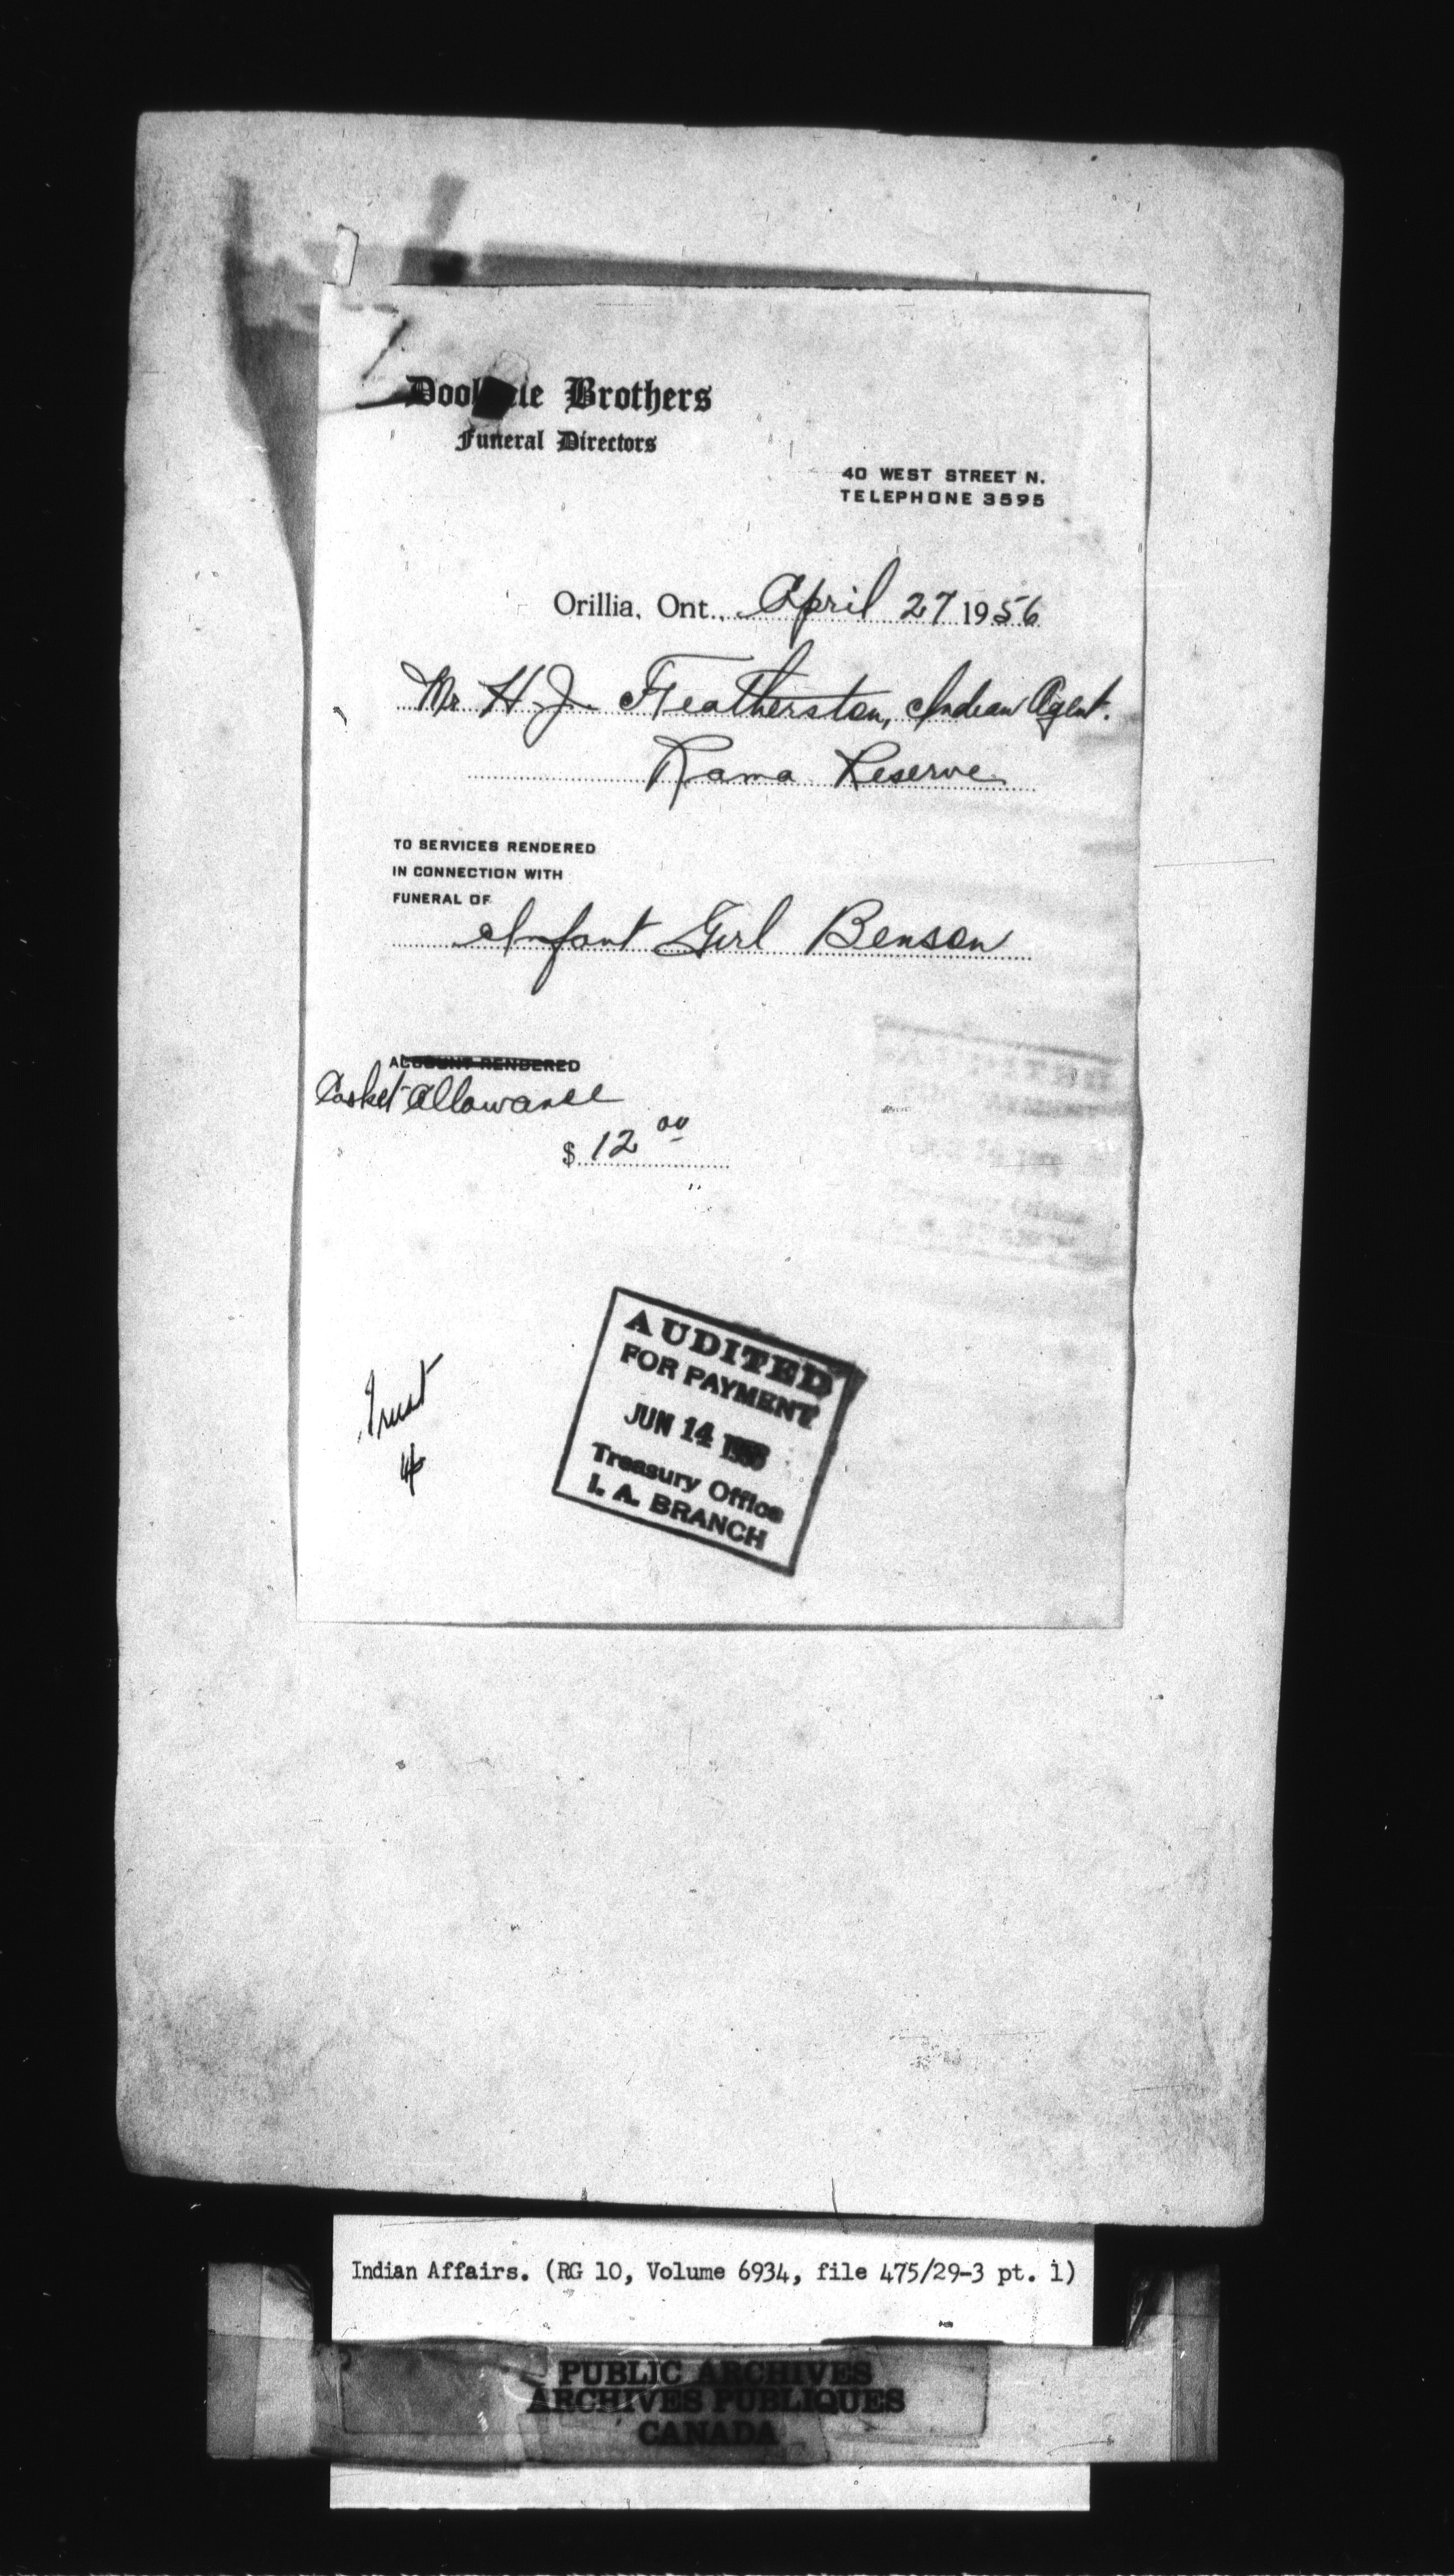 Brothers
Funeral Directors
40 WEST STREET N.
TELEPHONE 3595
Orillia, Ont., April 27 1956
Mr H. J. Featherston, Indian Agent.
Rama Reserve
TO SERVICES RENDERED
IN CONNECTION WITH
FUNERAL OF
Infant Girl Benson
ACCOUNT RENDERED
Casket Allowance
$ 12 00
Trust
AUDITED
FOR PAYMENT
JUN 14 1956
Treasury Office
I. A. BRANCH
Indian Affairs. (RG 10, Volume 6934, file 475/29-3 pt. 1)
PUBLIC ARCHIVES
ARCHIVES PUBLIQUES
CANADA